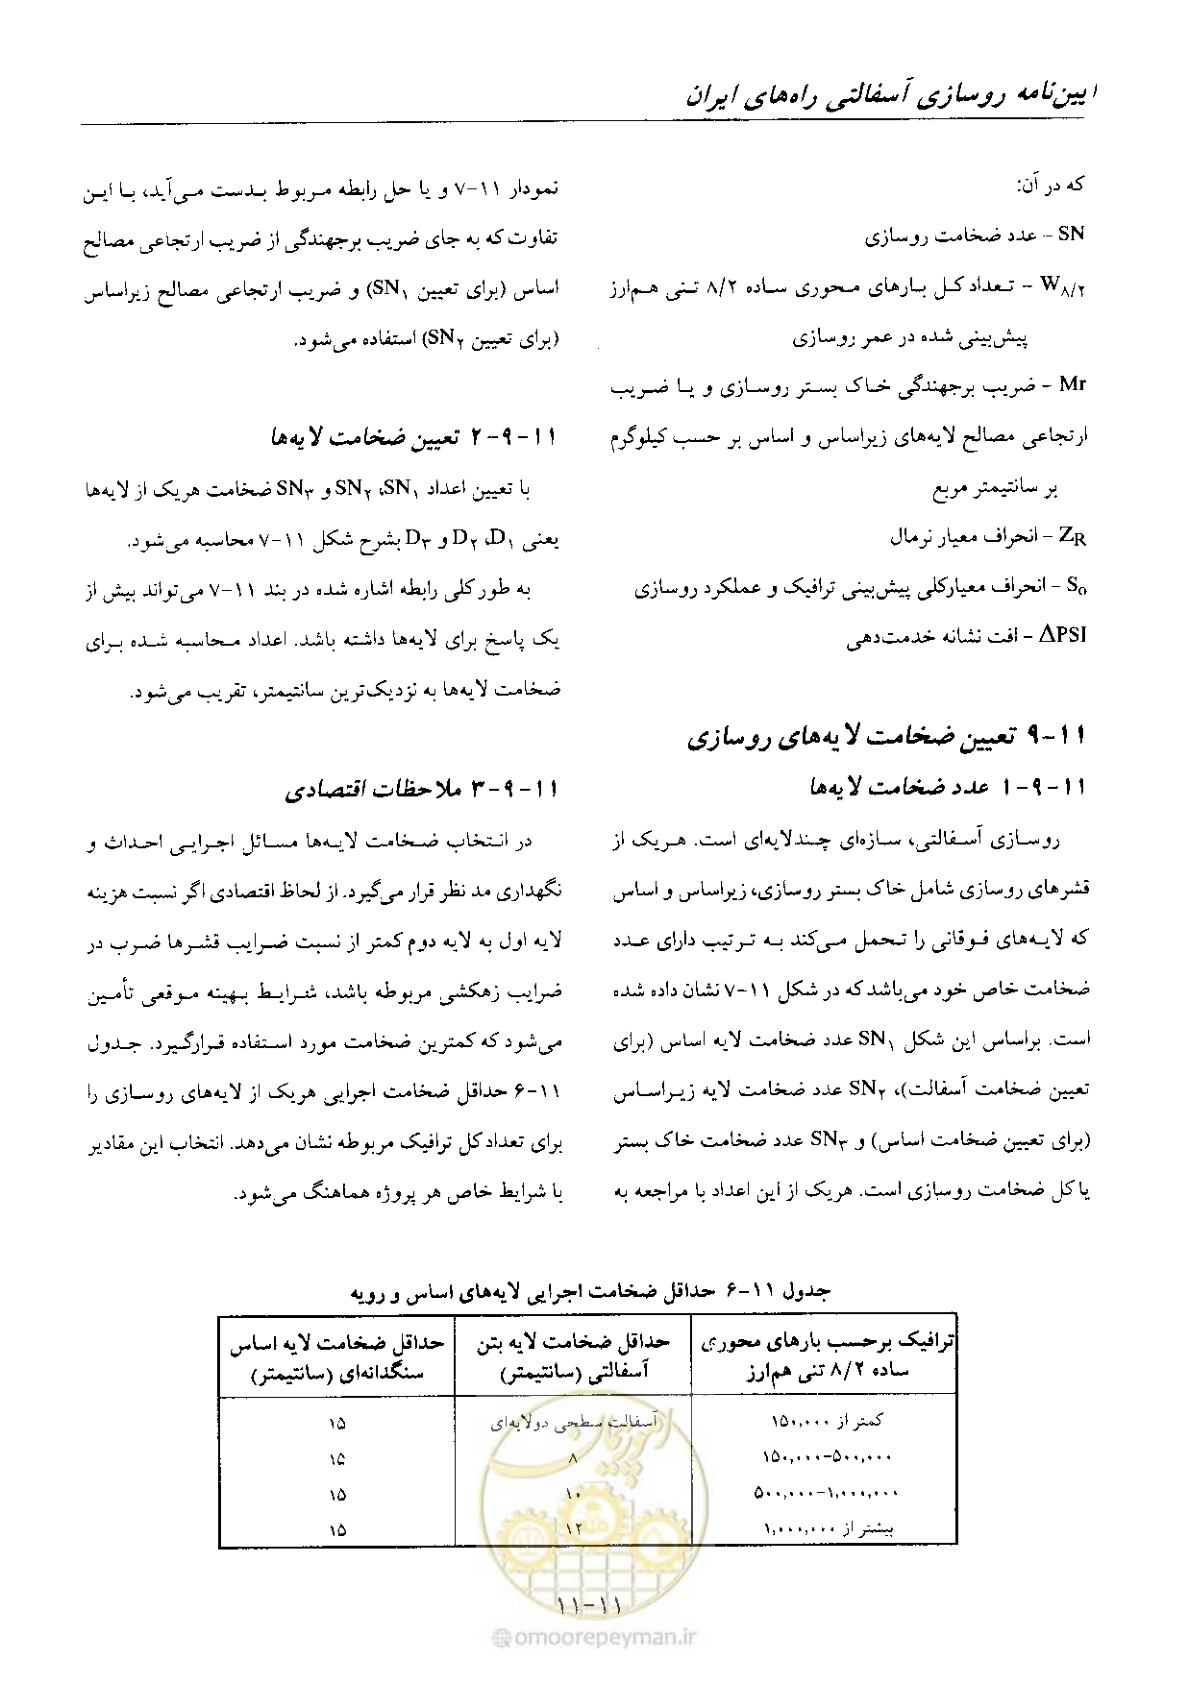 آیین‌نامه روسازی آسفالتی راه‌های ایران
که در آن:
SN - عدد ضخامت روسازی
W۸/۲ - تعداد کل بارهای محوری ساده ۸/۲ تنی هم‌ارز
پیش‌بینی شده در عمر روسازی
Mr - ضریب برجهندگی خاک بستر روسازی و یا ضریب
ارتجاعی مصالح لایه‌های زیراساس و اساس بر حسب کیلوگرم
بر سانتیمتر مربع
ZR - انحراف معیار نرمال
So - انحراف معیارکلی پیش‌بینی ترافیک و عملکرد روسازی
ΔPSI - افت نشانه خدمت‌دهی
۱۱-۹ تعیین ضخامت لایه‌های روسازی
۱۱-۹-۱ عدد ضخامت لایه‌ها
روسازی آسفالتی، سازه‌ای چندلایه‌ای است. هریک از
قشرهای روسازی شامل خاک بستر روسازی، زیراساس و اساس
که لایه‌های فوقانی را تحمل می‌کند به ترتیب دارای عدد
ضخامت خاص خود می‌باشد که در شکل ۱۱-۷ نشان داده شده
است. براساس این شکل SN۱ عدد ضخامت لایه اساس (برای
تعیین ضخامت آسفالت)، SN۲ عدد ضخامت لایه زیراساس
(برای تعیین ضخامت اساس) و SN۳ عدد ضخامت خاک بستر
یا کل ضخامت روسازی است. هریک از این اعداد با مراجعه به
نمودار ۱۱-۷ و یا حل رابطه مربوط بدست می‌آید، با این
تفاوت که به جای ضریب برجهندگی از ضریب ارتجاعی مصالح
اساس (برای تعیین SN۱) و ضریب ارتجاعی مصالح زیراساس
(برای تعیین SN۲) استفاده می‌شود.
۱۱-۹-۲ تعیین ضخامت لایه‌ها
با تعیین اعداد SN۱، SN۲ و SN۳ ضخامت هریک از لایه‌ها
یعنی D۱، D۲ و D۳ بشرح شکل ۱۱-۷ محاسبه می‌شود.
به طور کلی رابطه اشاره شده در بند ۱۱-۷ می‌تواند بیش از
یک پاسخ برای لایه‌ها داشته باشد. اعداد محاسبه شده برای
ضخامت لایه‌ها به نزدیک‌ترین سانتیمتر، تقریب می‌شود.
۱۱-۹-۳ ملاحظات اقتصادی
در انتخاب ضخامت لایه‌ها مسائل اجرایی احداث و
نگهداری مد نظر قرار می‌گیرد. از لحاظ اقتصادی اگر نسبت هزینه
لایه اول به لایه دوم کمتر از نسبت ضرایب قشرها ضرب در
ضرایب زهکشی مربوطه باشد، شرایط بهینه موقعی تأمین
می‌شود که کمترین ضخامت مورد استفاده قرارگیرد. جدول
۱۱-۶ حداقل ضخامت اجرایی هریک از لایه‌های روسازی را
برای تعداد کل ترافیک مربوطه نشان می‌دهد. انتخاب این مقادیر
با شرایط خاص هر پروژه هماهنگ می‌شود.
جدول ۱۱-۶ حداقل ضخامت اجرایی لایه‌های اساس و رویه
ترافیک برحسب بارهای محوری حداقل ضخامت لایه بتن حداقل ضخامت لایه اساس
ساده ۸/۲ تنی هم‌ارز آسفالتی (سانتیمتر) سنگدانه‌ای (سانتیمتر)
کمتر از ۱۵۰,۰۰۰ آسفالت سطحی دولایه‌ای ۱۵
۱۵۰,۰۰۰-۵۰۰,۰۰۰ ۸ ۱۵
۵۰۰,۰۰۰-۱,۰۰۰,۰۰۰ ۱۰ ۱۵
بیشتر از ۱,۰۰۰,۰۰۰ ۱۲ ۱۵
امور پیمان
۱۱-۱۱
omoorepeyman.ir